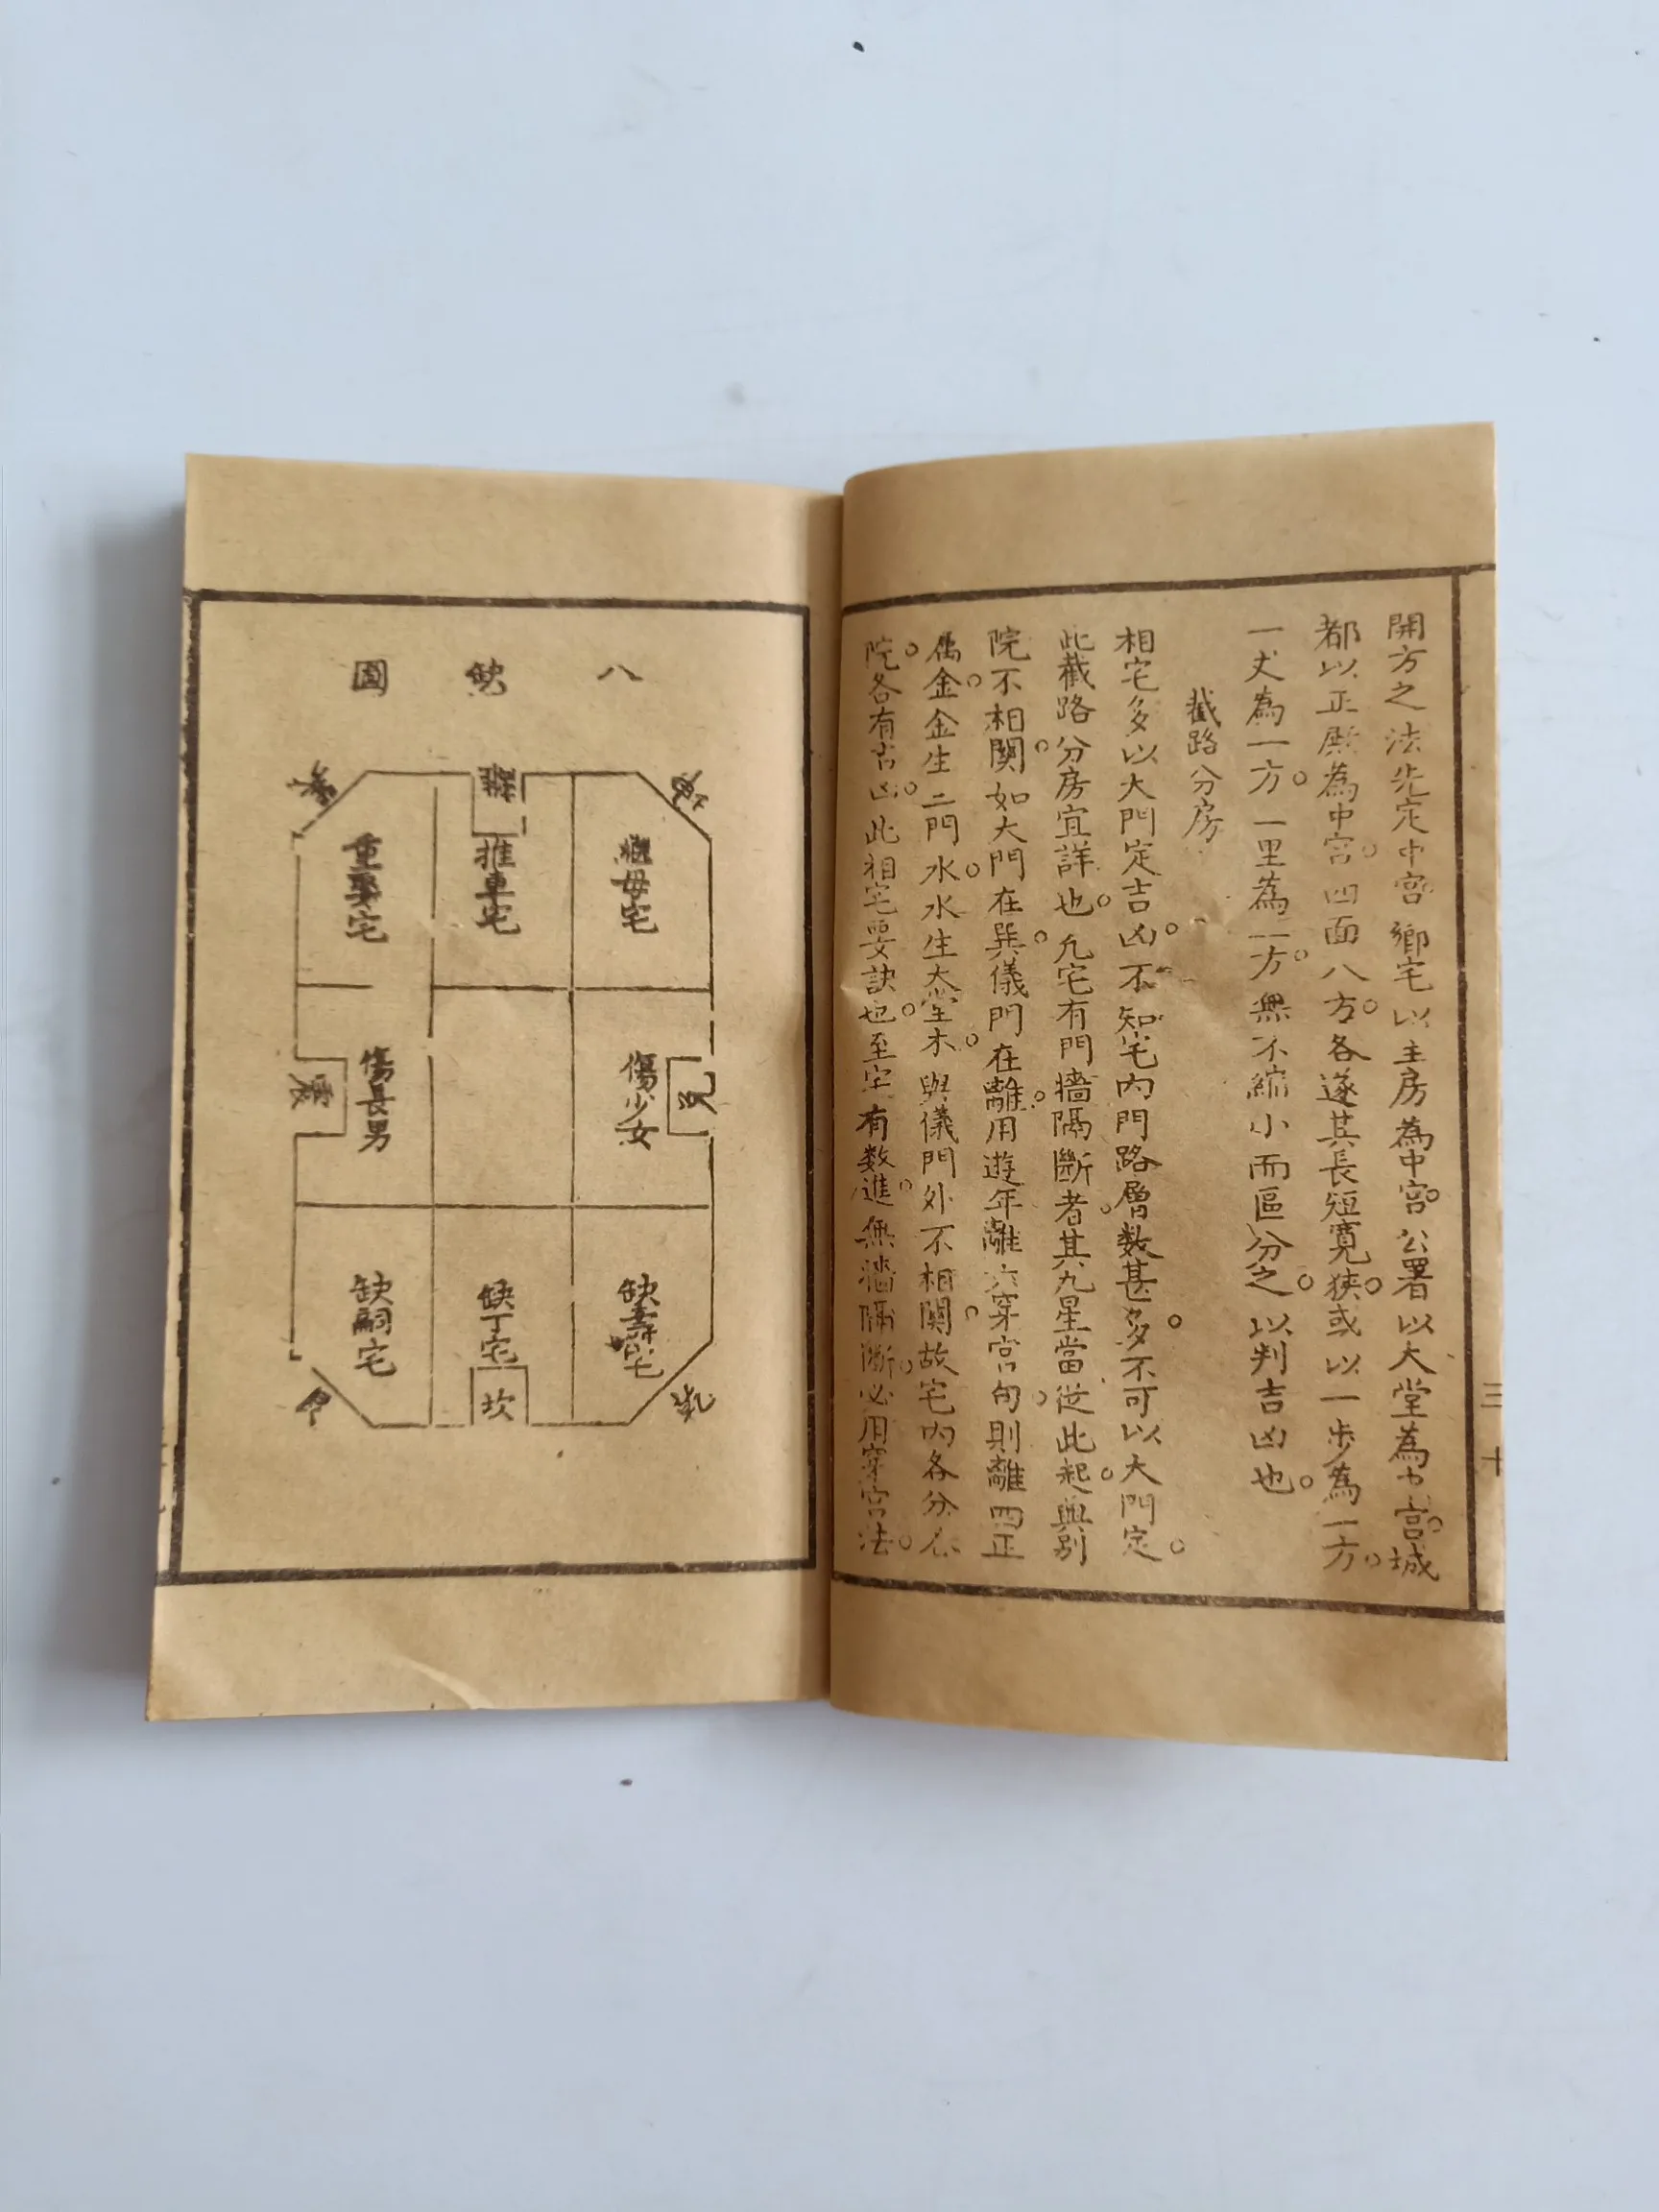 開方之法先定中宮鄉宅以主房為中宮。公署以大堂為中宮。城
都以正殿為中宮。四面八方。各遂其長短寬狹。或以一步為一方。
一丈為一方。一里為一方。無不縮小而區分之。以判吉凶也。
截路分房
相宅多以大門定吉凶。不知宅內門路層数甚多。不可以大門定。
此截路分房宜詳也。凢宅有門墻隔斷者。其九星當從此起。與别
院不相関。如大門在巽。儀門在離。用遊年離六穿宮句。則離四正
属金。金生二門水。水生大堂木。與儀門外不相関。故宅内各分各
院。各有吉凶。此相宅要訣也。至宅有数進。無墻隔斷。必用穿宫法。
三十
八缺圖
乾
離
繼母宅
推車宅
重娶宅
兌
傷少女
傷長男
震
缺丁宅
缺嗣宅
坎
艮